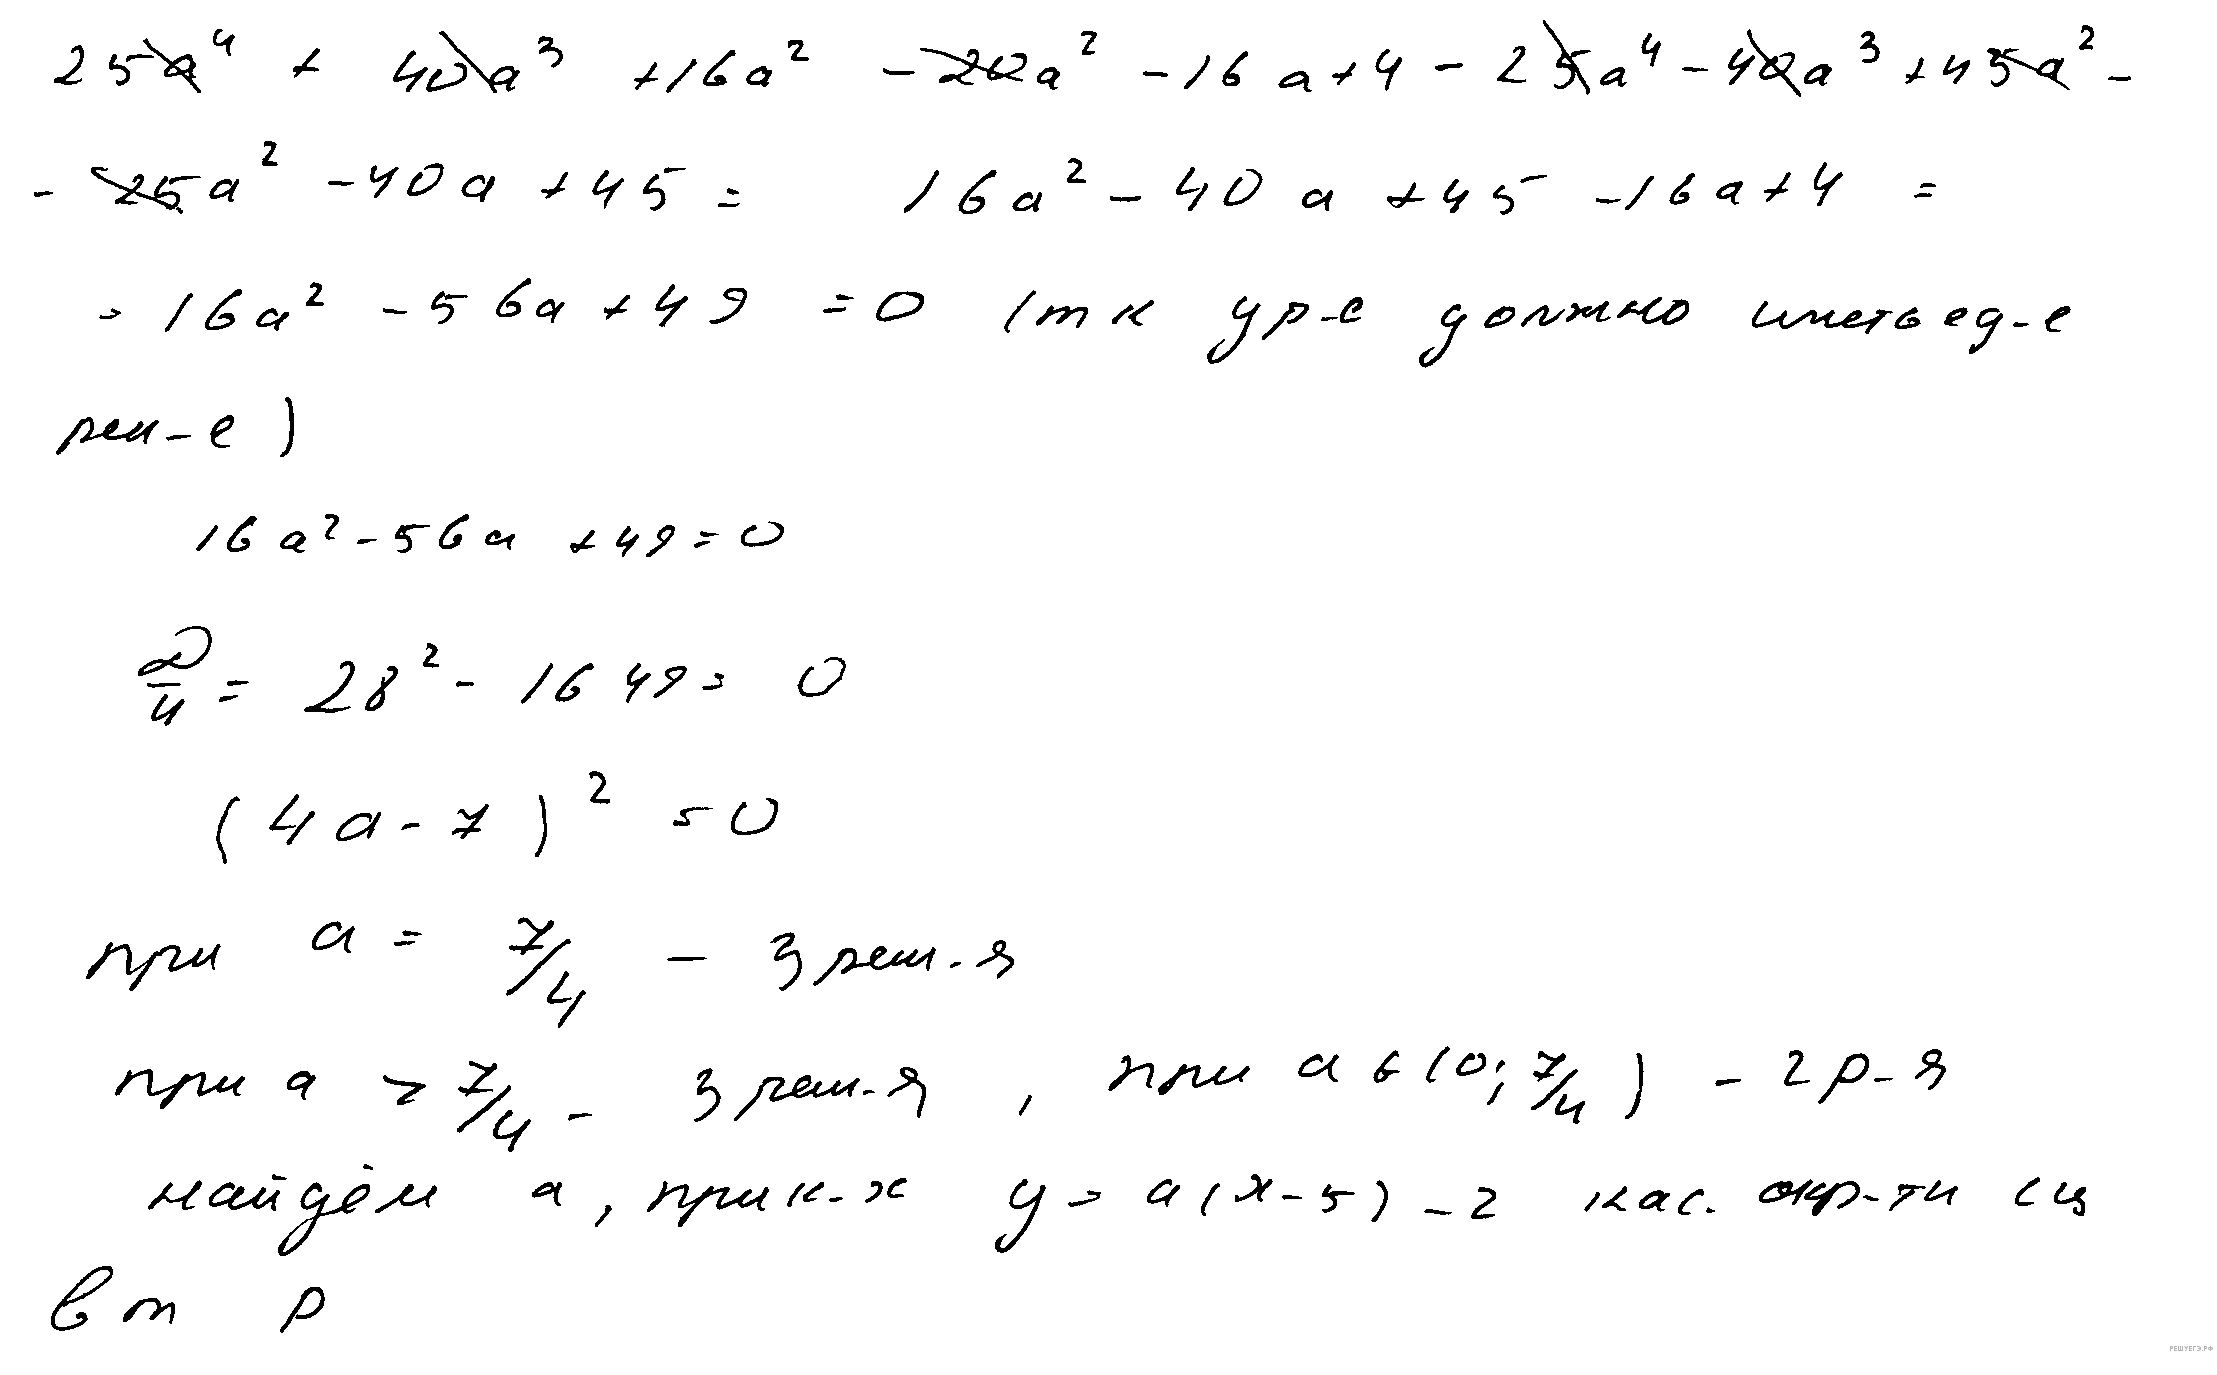 25a⁴ + 40a³ +16a² - 20a² - 16a+4 - 25a⁴ - 40a³ +45a² -
- 25a² - 40a +45 = 16a² - 40a +45 -16a+4 =
= 16a² - 56a +49 =0 (тк ур-е должно иметь ед-е
реш-е)
16a² - 56a +49=0
D/4 = 28² - 16 49= 0
(4a-7)² =0
при a = 7/4 - 3 реш-я
при a > 7/4 - 3 реш-я , при a ∈ (0; 7/4) - 2 р-я
найдём a, при к-х y = a(x-5) -2 кас. окр-ти с ц
в т P
РЕШУЕГЭ.РФ